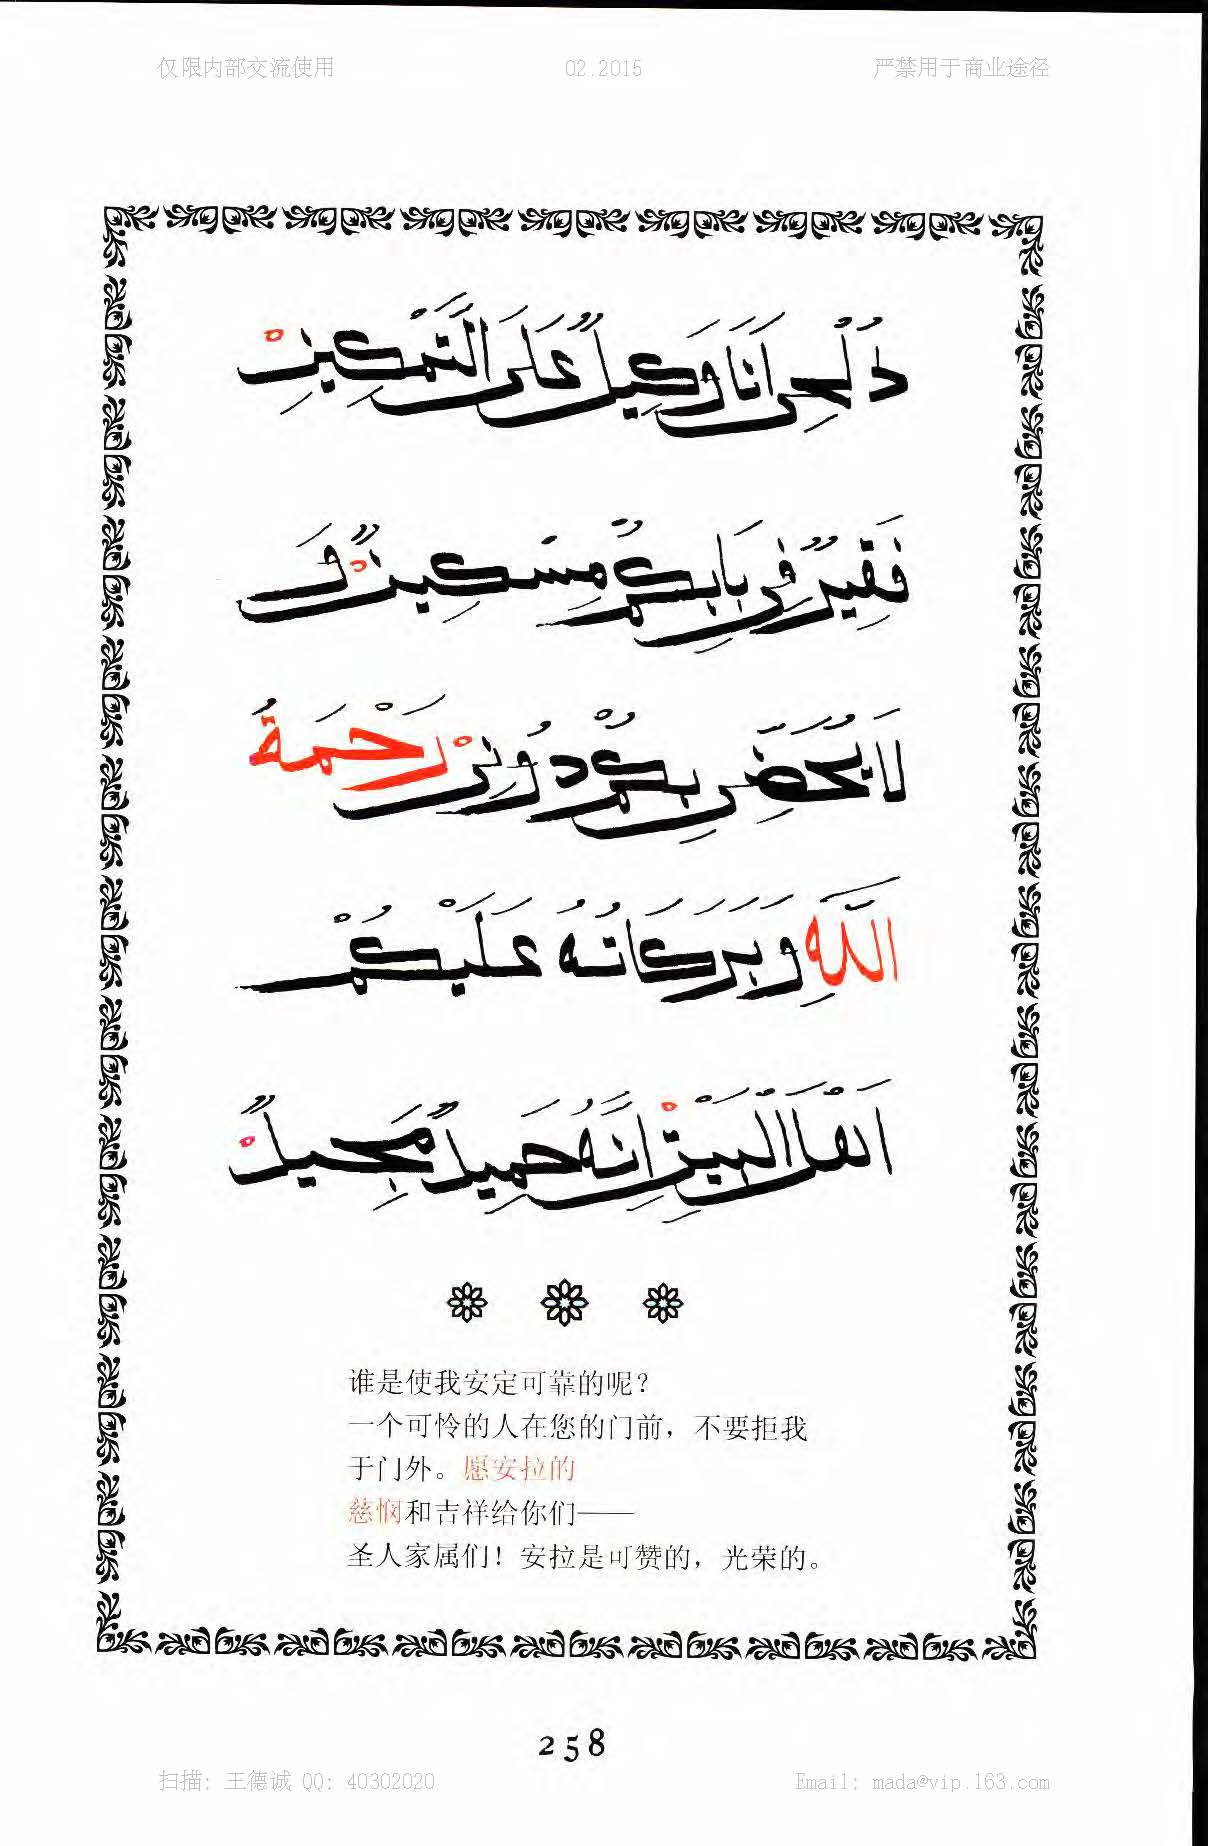 仅限内部交流使用 02.2015 严禁用于商业途径
أَنَا وَكِيلٌ عَلَى التَّمْكِينِ
فَقِيرٌ فِي بَابِكُمْ مِسْكِينٌ وَ
لَا بِكُمْ دُونِ رَحْمَةُ
اللَّهِ وَبَرَكَاتُهُ عَلَيْكُمْ
أَهْلَ الْبَيْتِ إِنَّهُ حَمِيدٌ مَجِيدٌ
谁是使我安定可靠的呢?
一个可怜的人在您的门前,不要拒我
于门外。愿安拉的
慈悯和吉祥给你们——
圣人家属们!安拉是可赞的,光荣的。
258
扫描: 王德诚 QQ: 40302020 Email: mada@vip.163.com